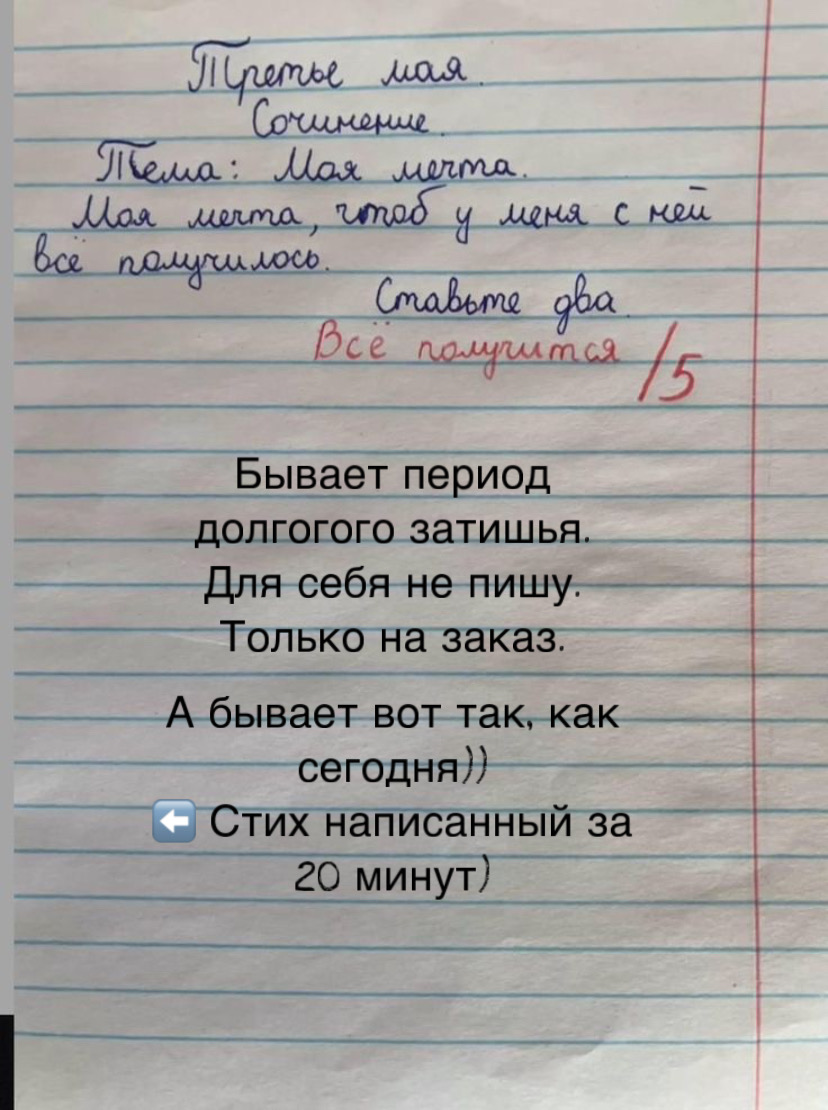 Третье мая.
Сочинение.
Тема: Моя мечта.
Моя мечта, чтоб у меня с ней
всё получилось.
Ставьте два.
Всё получится /5
Бывает период
долгогого затишья.
Для себя не пишу.
Только на заказ.
А бывает вот так, как
сегодня))
⬅️ Стих написанный за
20 минут)